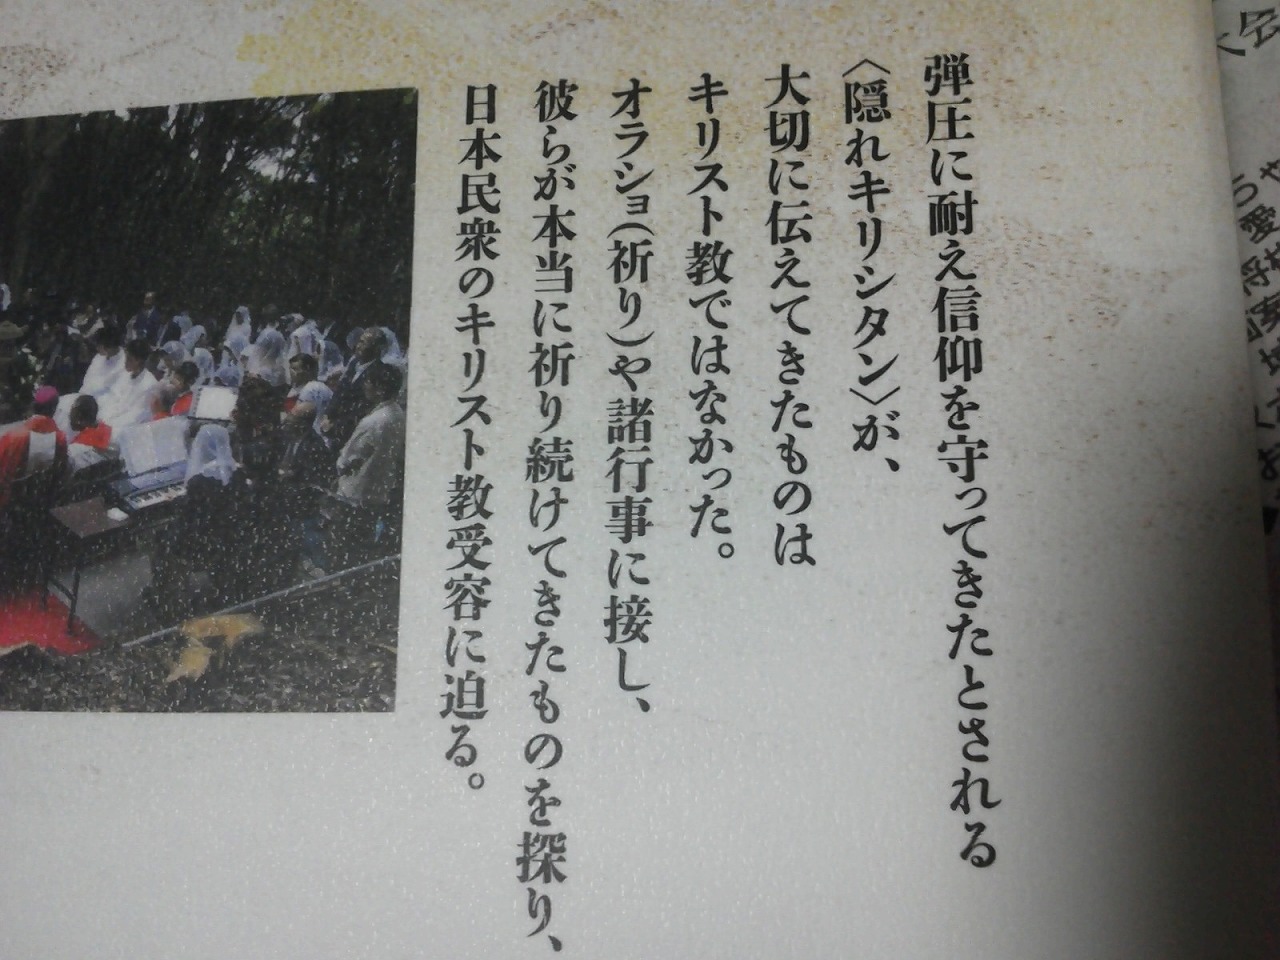 弾圧に耐え信仰を守ってきたとされる
〈隠れキリシタン〉が、
大切に伝えてきたものは
キリスト教ではなかった。
オラショ(祈り)や諸行事に接し、
彼らが本当に祈り続けてきたものを探り、
日本民衆のキリスト教受容に迫る。